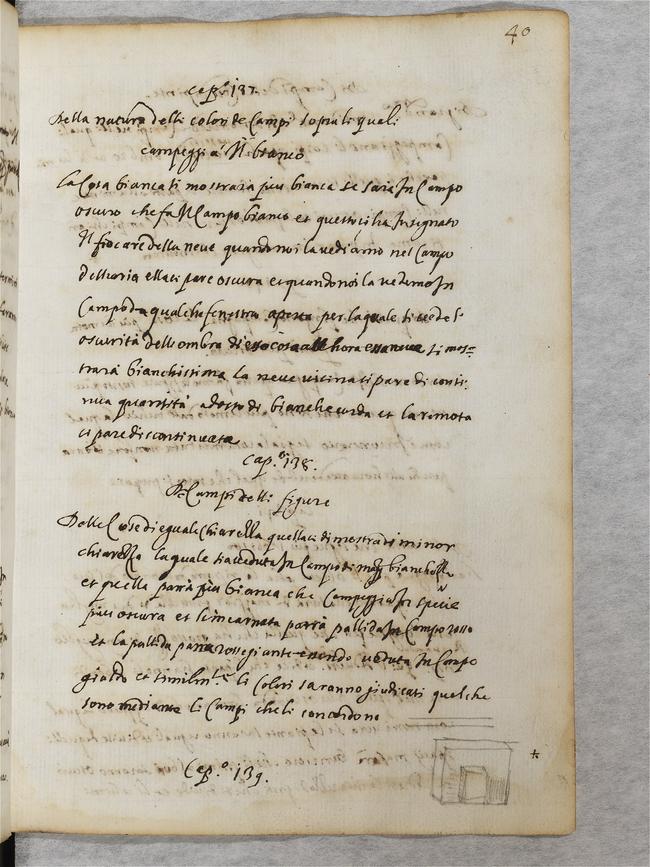 40
cap.º 137.
Della natura delli colori de Campi sopra li quali
campeggia Il bianco
La Cosa bianca si mostrarà piu bianca se sarà In Campo
oscuro che fà Il Campo bianco et questo ci ha Insegnato
Il fiocare della neve quando noi la vediamo nel Campo
dell'aria ella ci pare oscura et quando noi la vedemo In
Campo da qualche fenestra aperta per la quale si vede l'
oscurità dell'ombra di essa cosa all'hora essa neve si mos=
trarà bianchissima la neve vicina ci pare di conti-
nua quantità et la remota
ci pare discontinuata
cap.º 138.
De Campi delli figure
Delle Cose di eguale Chiarezza quella ci dimostra di minor
chiarezza la quale sia veduta In Campo di magg. bianchezza
et quella parrà piu bianca che Campeggia In spatio
piu oscura et l'incarnata parrà pallida In Campo rosso
Et la pallida parrà rossegiante essendo veduta In Campo
giallo et similm.te li Colori saranno giudicati quel che
sono mediante li Campi che li circondono
Cap.º 139.